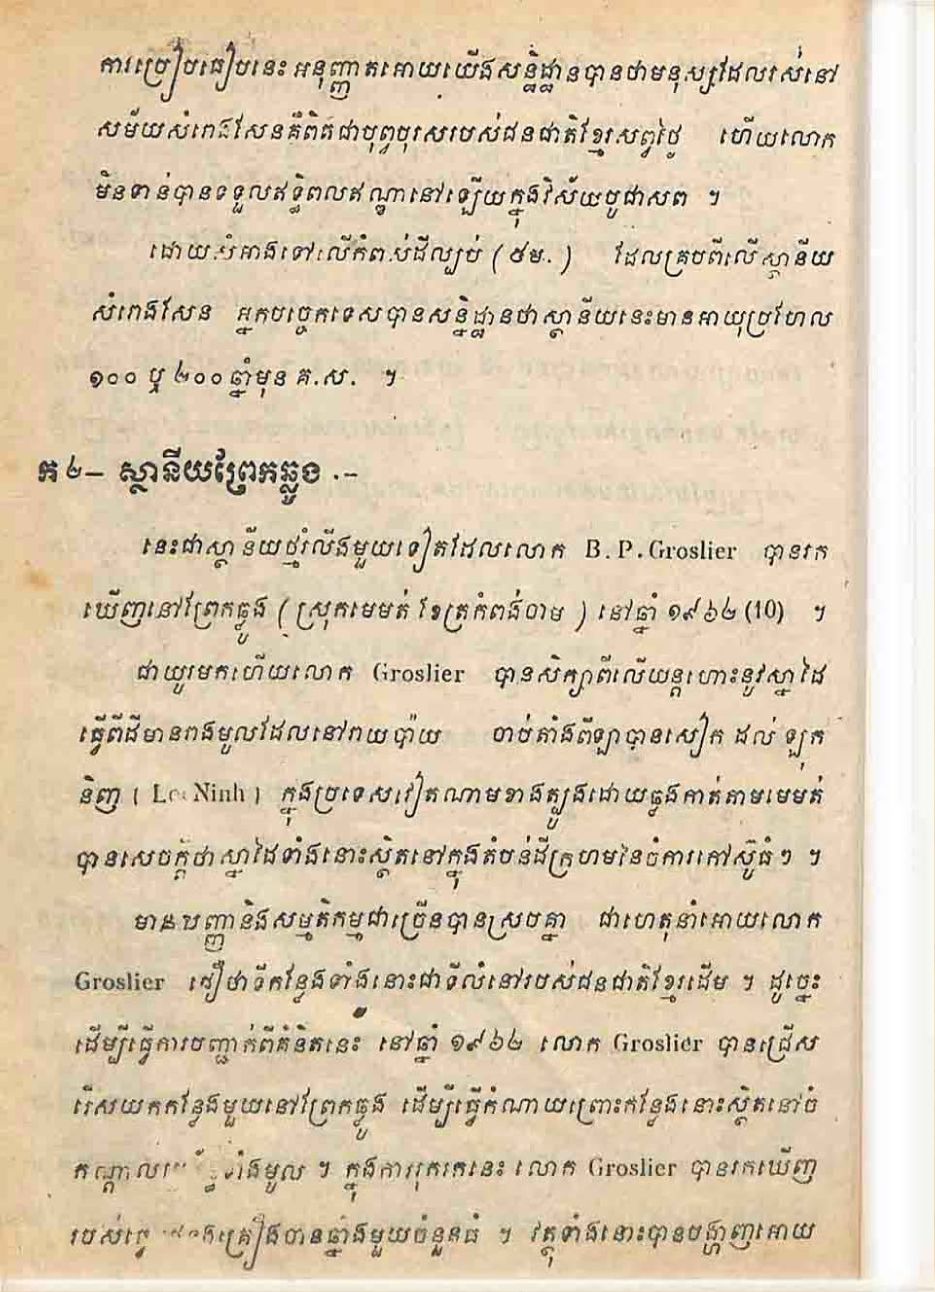 ការប្រៀបធៀបនេះ អនុញ្ញាតអោយយើងសន្និដ្ឋានបានថាមនុស្សដែលរស់នៅ
សម័យសំរោងសែនគឺពិតជាបុព្វបុរសរបស់ជនជាតិខ្មែរសព្វថ្ងៃ ហើយលោក
មិនទាន់បានទទួលឥទ្ធិពលឥណ្ឌានៅឡើយក្នុងវិស័យបូជាសព ។
ដោយសំអាងទៅលើកំពស់ដីល្បប់ ( ៥ម. ) ដែលគ្របពីលើស្ថានីយ
សំរោងសែន អ្នកបច្ចេកទេសបានសន្និដ្ឋានថាស្ថានីយនេះមានអាយុប្រហែល
១០០ ឬ ២០០ ឆ្នាំមុន គ.ស. ។
ក ២– ស្ថានីយព្រែកឆ្លូង .–
នេះជាស្ថានីយថ្មរំលីងមួយទៀតដែលលោក B. P. Groslier បានរក
ឃើញនៅព្រែកឆ្លូង ( ស្រុកមេមត់ ខែត្រកំពង់ចាម ) នៅឆ្នាំ ១៩៦២ (10) ។
ជាយូរមកហើយលោក Groslier បានសិក្សាពីលើយន្តហោះនូវស្នាដៃ
ធ្វើពីដីមានរាងមូលដែលនៅរាយប៉ាយ ចាប់តាំងពីឡាបានសៀក ដល់ ឡុក
និញ ( Loc Ninh ) ក្នុងប្រទេសវៀតណាមខាងត្បូងដោយឆ្លងកាត់តាមមេមត់
បានសេចក្តីថា ស្នាដៃទាំងនោះស្ថិតនៅក្នុងតំបន់ដីក្រហមនៃចំការកៅស៊ូធំៗ ។
មានបញ្ញានិងសម្មតិកម្មជាច្រើនបានស្របគ្នា ជាហេតុនាំអោយលោក
Groslier ជឿថាទីកន្លែងទាំងនោះជាទីលំនៅរបស់ជនជាតិខ្មែរដើម ។ ដូច្នេះ
ដើម្បីធ្វើការបញ្ជាក់ពីគំនិតនេះ នៅឆ្នាំ ១៩៦២ លោក Groslier បានជ្រើស
រើសយកកន្លែងមួយនៅព្រែកឆ្លូង ដើម្បីធ្វើកំណាយព្រោះកន្លែងនោះស្ថិតនៅចំ
កណ្តាល ទាំងមូល ។ ក្នុងការរុករកនេះ លោក Groslier បានរកឃើញ
គ្រឿងចានឆ្នាំងមួយចំនួនធំ ។ វត្ថុទាំងនោះបានបង្ហាញអោយ